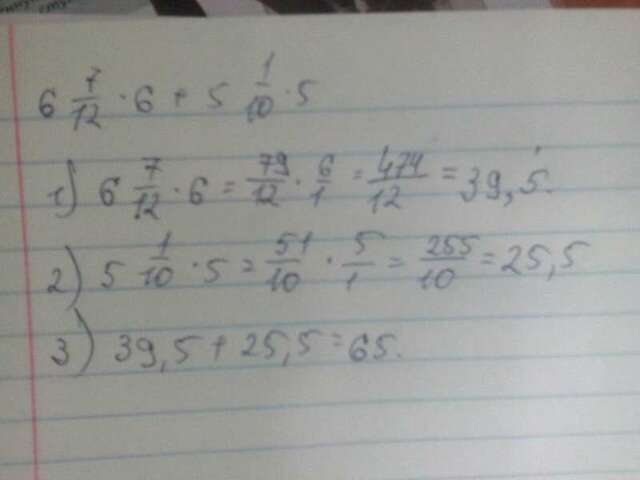 6 7/12 · 6 + 5 1/10 · 5
1) 6 7/12 · 6 = 79/12 · 6/1 = 474/12 = 39,5.
2) 5 1/10 · 5 = 51/10 · 5/1 = 255/10 = 25,5
3) 39,5 + 25,5 = 65.